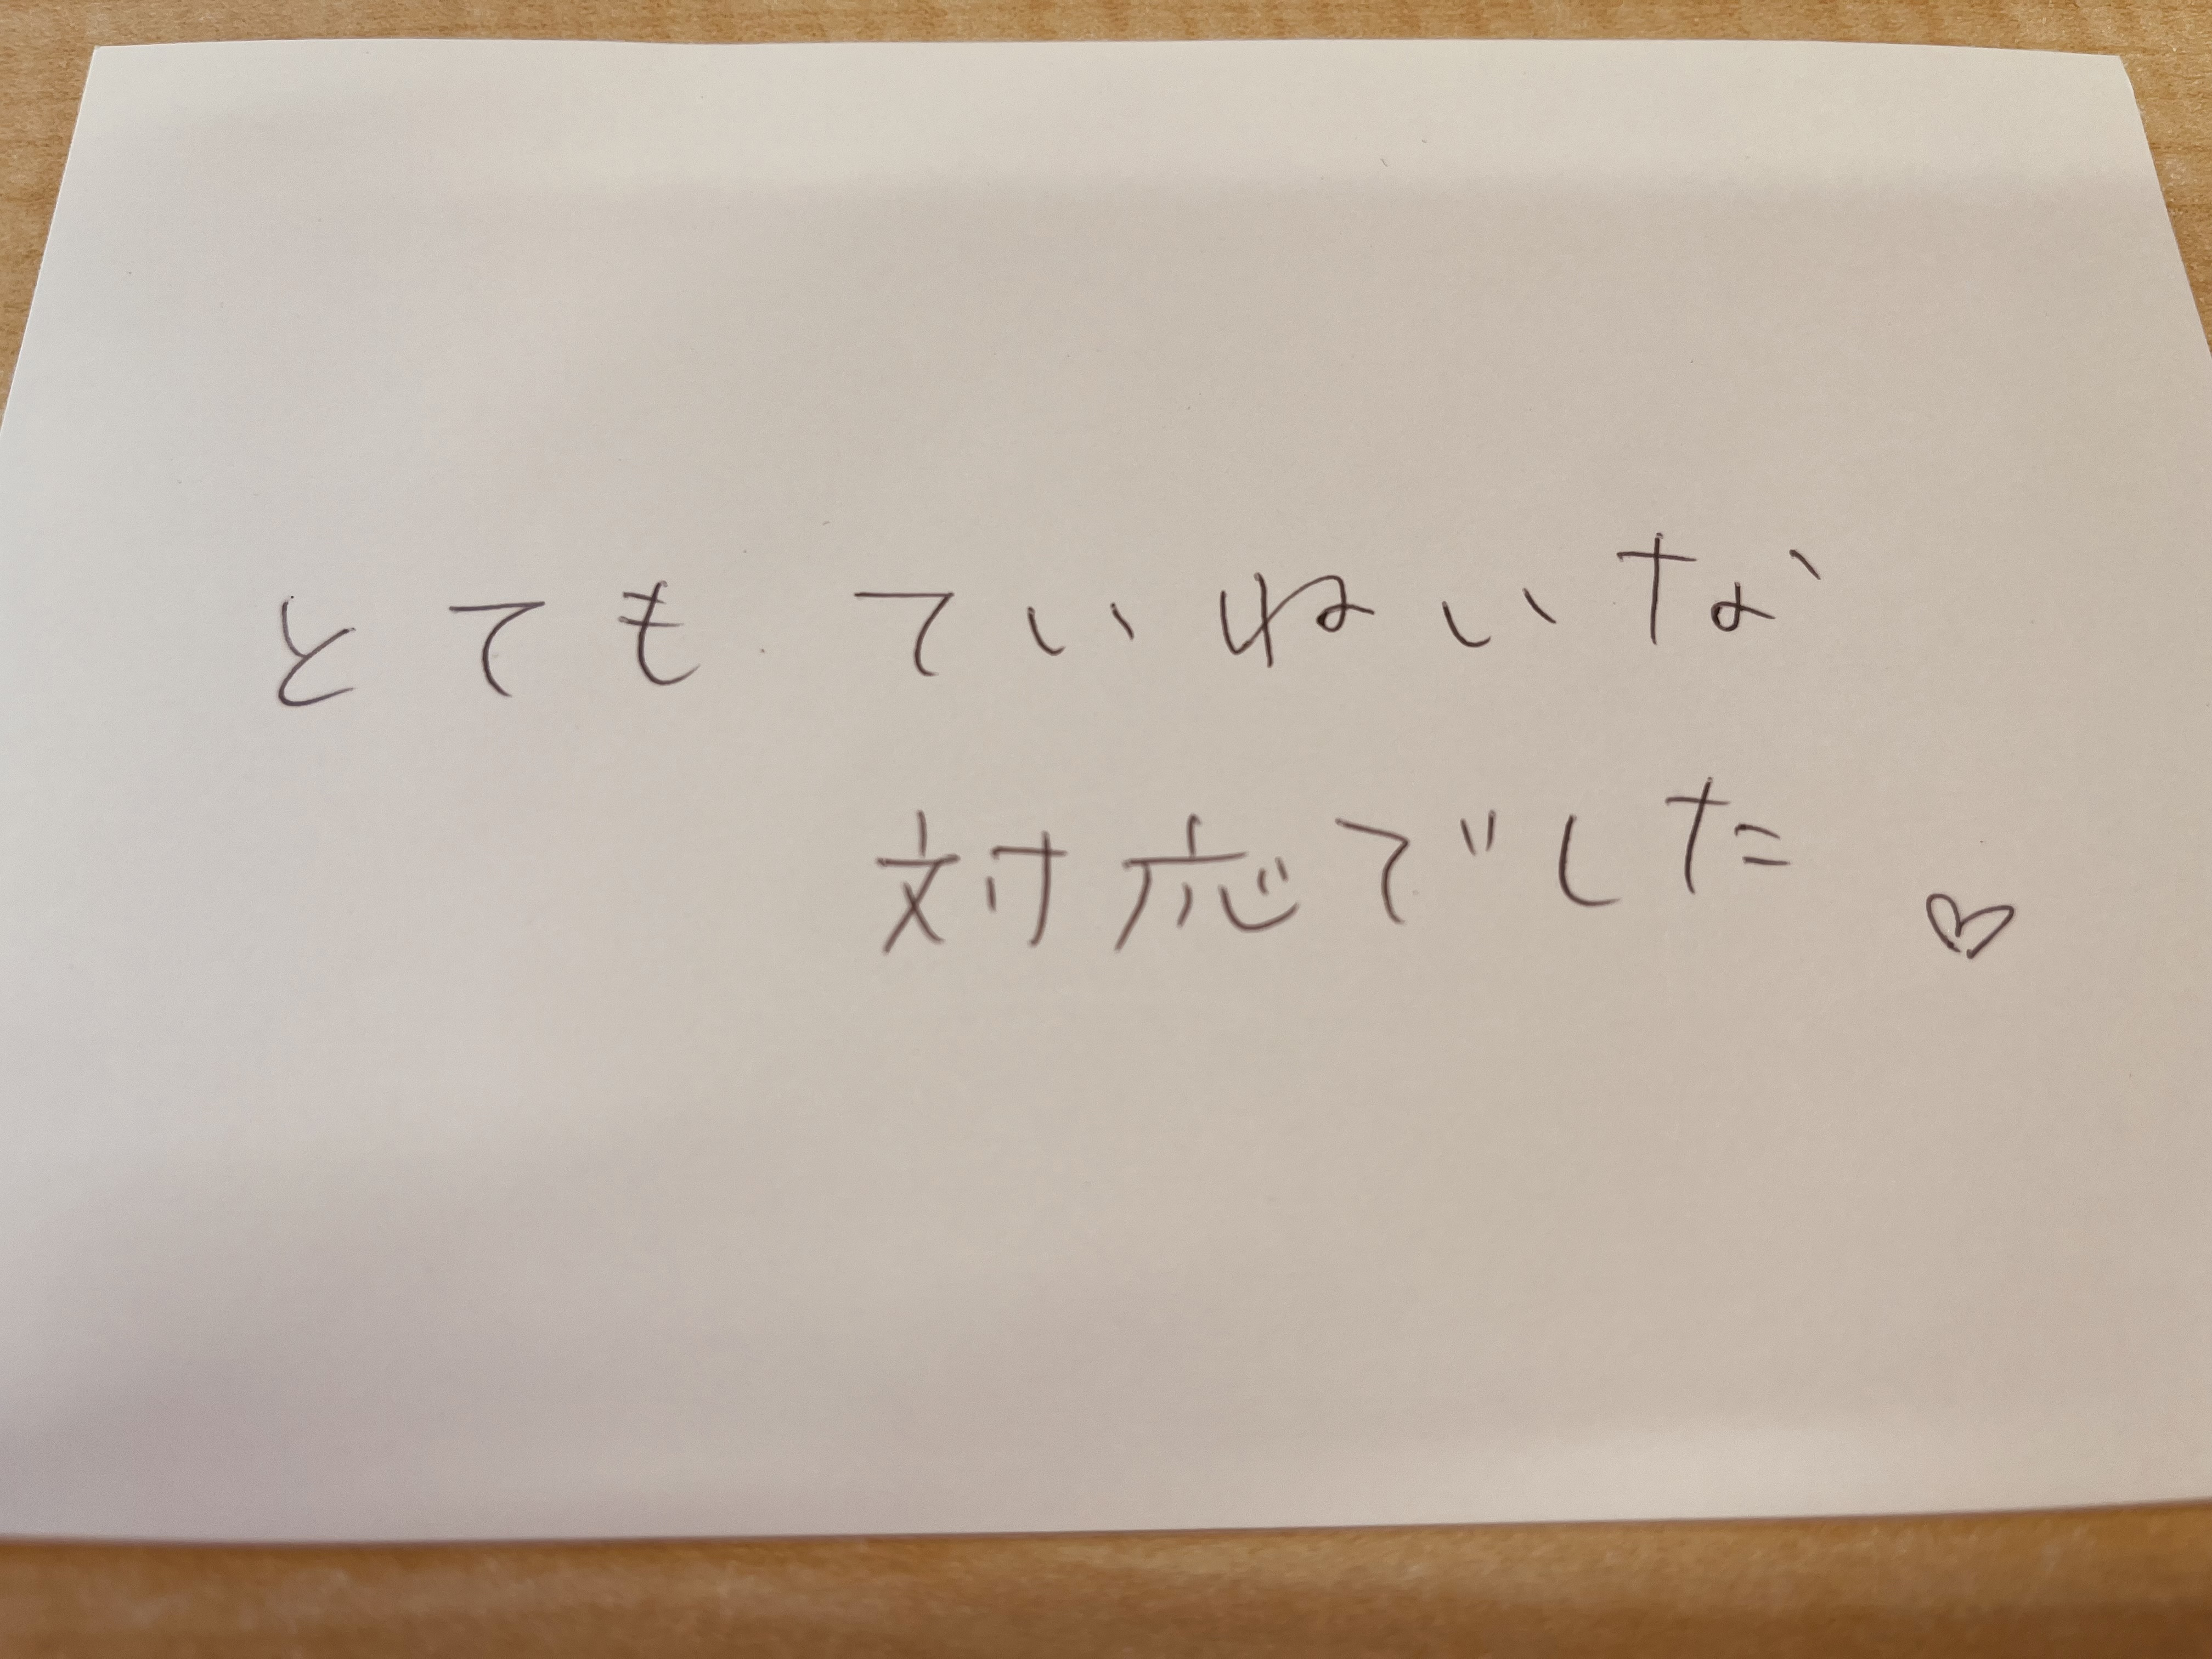 とても ていねいな
対応でした ♡